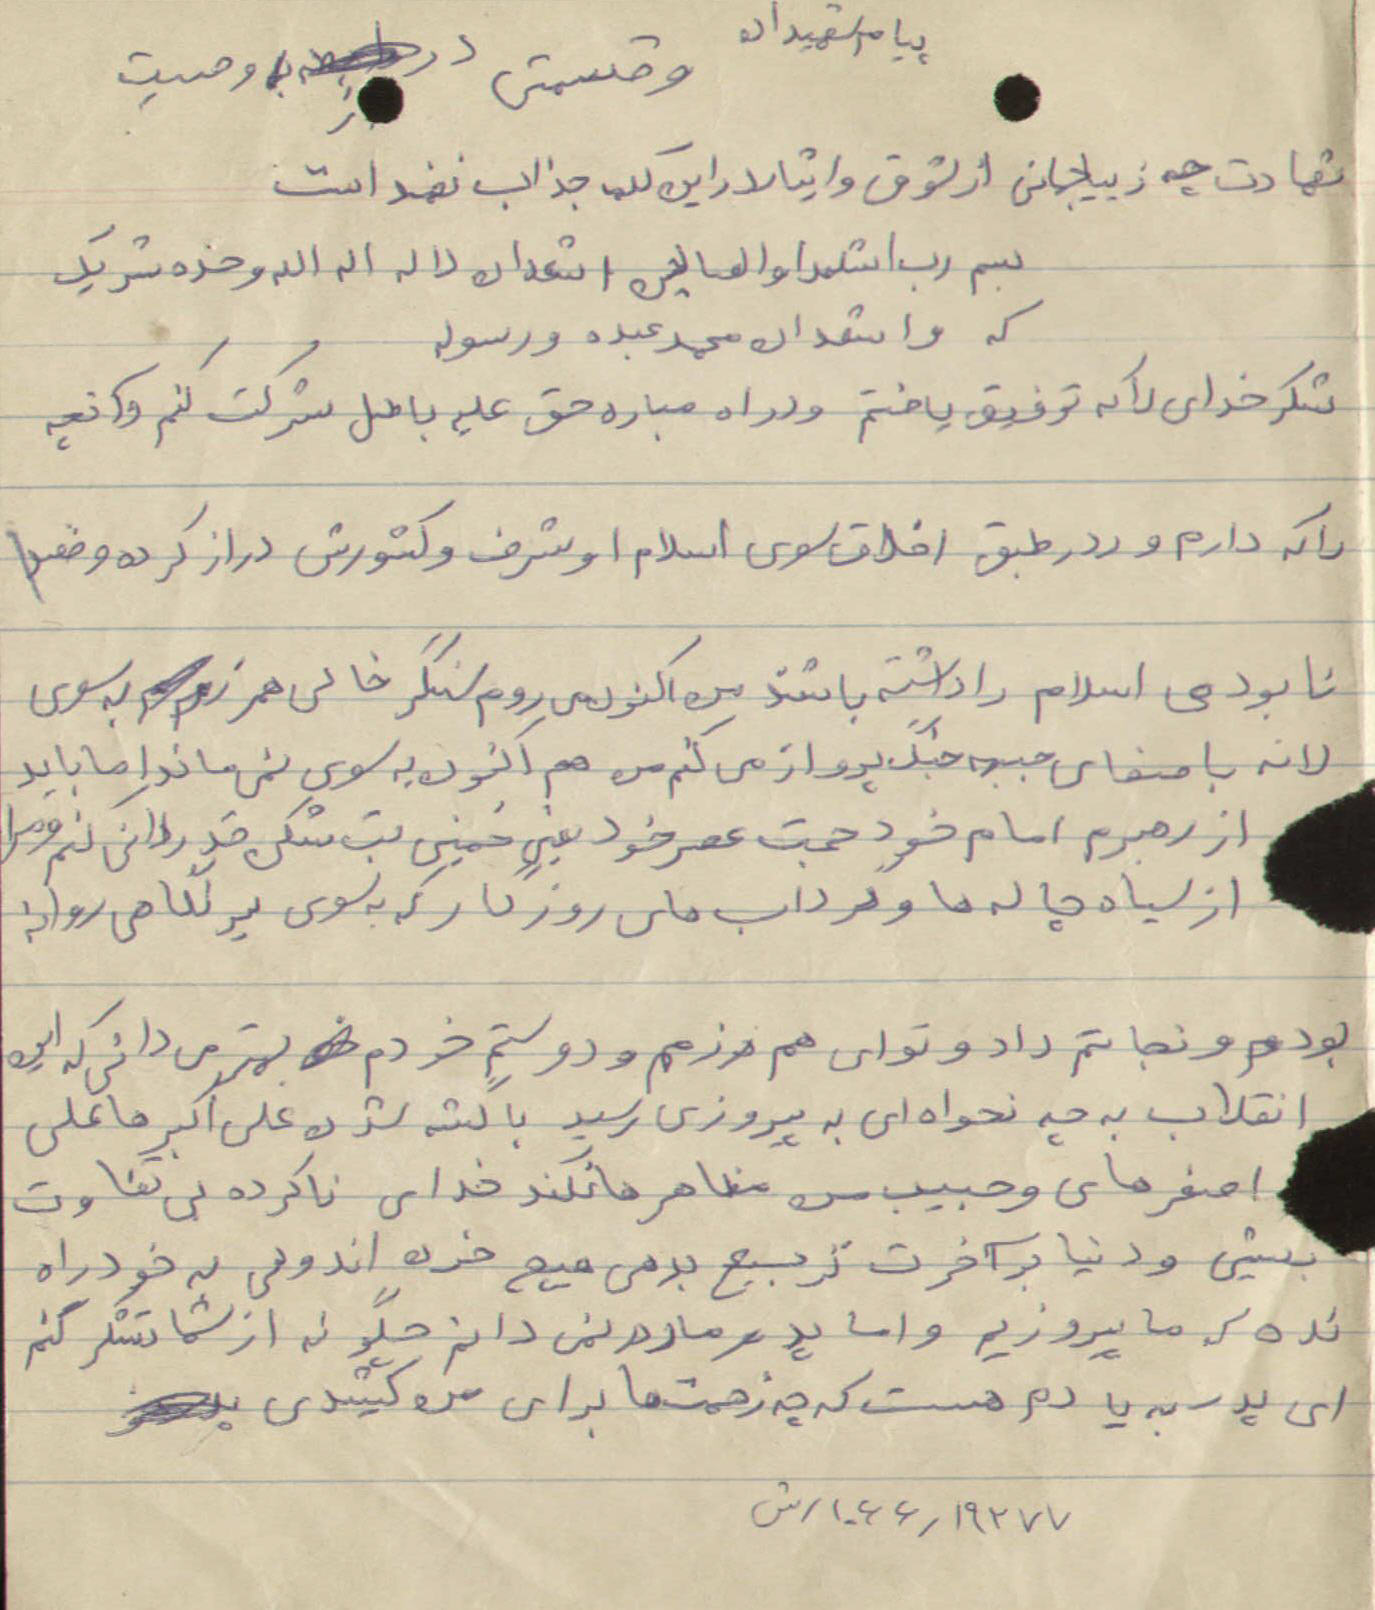 پیام شهیدان
وقسمتی در به وصیت
شهادت چه زیبا از شوق وایثار دراین کلمه جذاب نهفته است
بسم رب الشهدا والصالحین اشهدان لااله اله اله وحده شریک
که واشهدان محمد عبده ورسوله
شکر خدای راکه توفیق یافتم ودراه مبارزه حق علیه باطل شرکت کنم وآنچه
راکه دارم و در طبق اخلاق سوی اسلام اوشرف وکشورش دراز کرده وقصد
نابودی اسلام راداشته باشند من اکنون می روم سنگر خالی همرزم به سوی
لانه باصفای جبهه جنگ پرواز می کنم من هم اکنون به سوی نمی ماند اما باید
از رهبرم امام خود حجت عصر خود یعنی خمینی بت شکن قدردانی کنم ومرا
از سیاه چاله ها و گرداب های روزگار که به سوی پرتگاهی روانه
بودم و نجاتم داد و توای هم رزم و دوستم خودم بهتر می دانی که این
انقلاب به چه نحواه ای به پیروزی رسید با کشته شدن علی اکبرها علی
اصغرهای وحبیب بن مظاهر هانکند خدای ناکرده بی تفاوت
بشینی ودنیا برآخرت ترجیح بدهی هیچ حزن اندوهی به خود راه
نده که ما پیروزیم واما پدر مادر نمی دانم چگونه از شما تشکر کنم
ای پدر به یادم هست که چه زحمت ها برای من کشیدی
۱۰۶۶/۱۹۲۷۷/ش